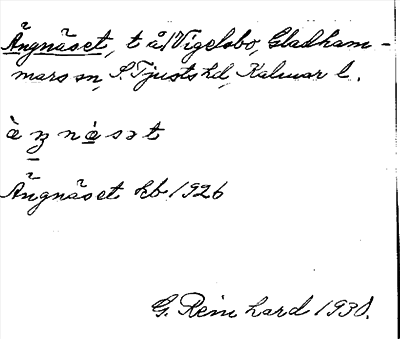 Ängnäset, t å/Vigelsbo, Gladham-
mars sn, S. Tjusts hd, Kalmar l.
Ängnäset kb 1926
G. Reinhard 1930.